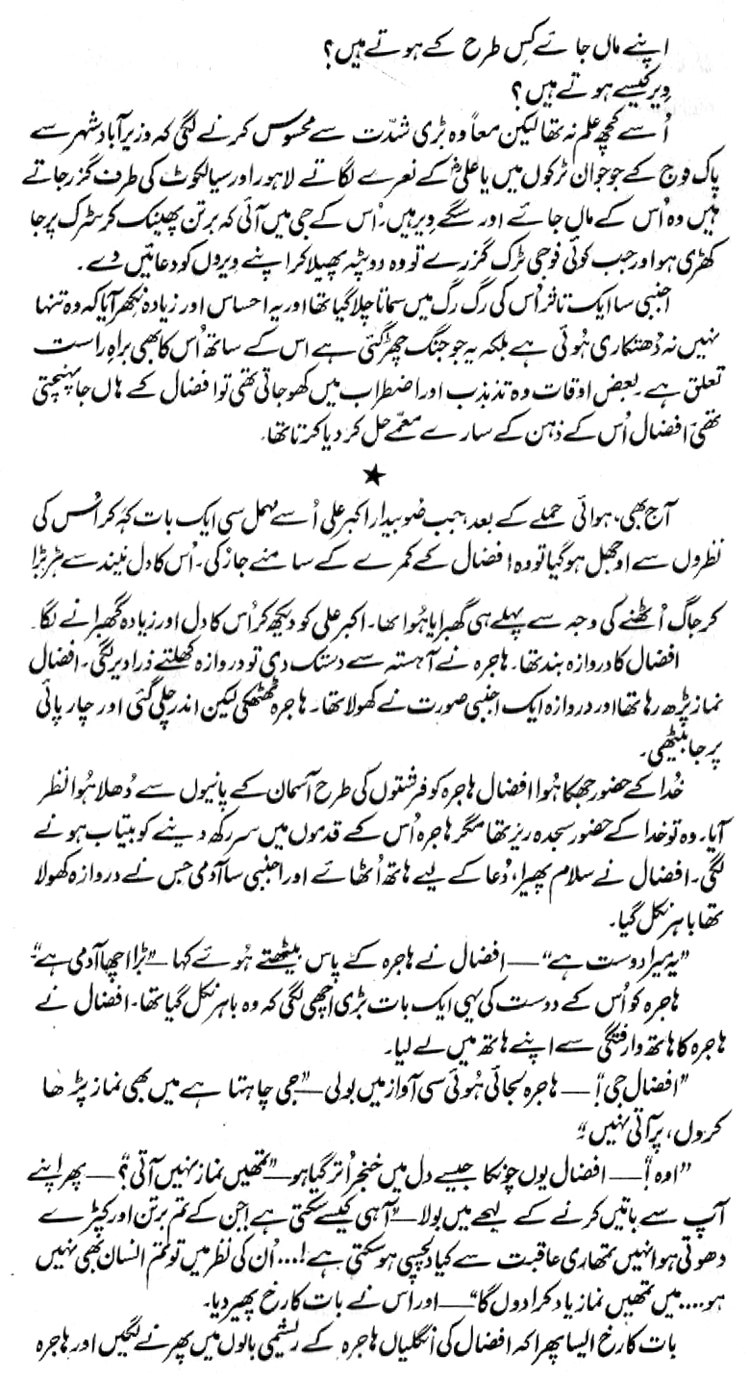 اپنے ماں جائے کس طرح کے ہوتے ہیں؟
ویر کیسے ہوتے ہیں؟
اُسے کچھ علم نہ تھا لیکن معاً وہ بڑی شدّت سے محسوس کرنے لگی کہ وزیرآباد شہر سے
پاک فوج کے جو جوان ٹرکوں میں یا علیؓ کے نعرے لگاتے لاہور اور سیالکوٹ کی طرف گزر جاتے
ہیں وہ اُس کے ماں جائے اور سگے ویر ہیں۔ اُس کے جی میں آئی کہ برتن پھینک کر سڑک پر جا
کھڑی ہو اور جب کوئی فوجی ٹرک گزرے تو وہ دوپٹہ پھیلا کر اپنے ویروں کو دعائیں دے۔
اجنبی سا ایک تاثر اُس کی رگ رگ میں سماتا چلا گیا تھا اور یہ احساس اور زیادہ نکھر آیا کہ وہ تنہا
نہیں نہ دُھتکاری ہُوئی ہے بلکہ یہ جو جنگ چھڑ گئی ہے اس کے ساتھ اُس کا بھی براہِ راست
تعلق ہے۔ بعض اوقات وہ تذبذب اور اضطراب میں کھو جاتی تھی تو افضال کے ہاں جا پہنچتی
تھی، افضال اُس کے ذہن کے سارے معمّے حل کر دیا کرتا تھا۔
★
آج بھی، ہوائی حملے کے بعد، جب صوبیدار اکبر علی اُسے مہمل سی ایک بات کہہ کر اُس کی
نظروں سے اوجھل ہو گیا تو وہ افضال کے کمرے کے سامنے جا رُکی۔ اُس کا دل نیند سے ہڑبڑا
کر جاگ اُٹھنے کی وجہ سے پہلے ہی گھبرایا ہُوا تھا۔ اکبر علی کو دیکھ کر اُس کا دل اور زیادہ گھبرانے لگا۔
افضال کا دروازہ بند تھا۔ ہاجرہ نے آہستہ سے دستک دی تو دروازہ کھلتے ذرا دیر لگی۔ افضال
نماز پڑھ رہا تھا اور دروازہ ایک اجنبی صورت نے کھولا تھا۔ ہاجرہ ٹھٹھکی لیکن اندر چلی گئی اور چارپائی
پر جا بیٹھی۔
خُدا کے حضور جھکا ہُوا افضال ہاجرہ کو فرشتوں کی طرح آسمان کے پانیوں سے دُھلا ہُوا نظر
آیا۔ وہ تو خدا کے حضور سجدہ ریز تھا مگر ہاجرہ اُس کے قدموں میں سر رکھ دینے کو بیتاب ہونے
لگی۔ افضال نے سلام پھیرا، دُعا کے لیے ہاتھ اُٹھائے اور اجنبی سا آدمی جس نے دروازہ کھولا
تھا باہر نکل گیا۔
"یہ میرا دوست ہے" — افضال نے ہاجرہ کے پاس بیٹھتے ہُوئے کہا — "بڑا اچھا آدمی ہے"۔
ہاجرہ کو اُس کے دوست کی یہی ایک بات بڑی اچھی لگی کہ وہ باہر نکل گیا تھا۔ افضال نے
ہاجرہ کا ہاتھ وارفتگی سے اپنے ہاتھ میں لے لیا۔
"افضال جی!" — ہاجرہ لجائی ہُوئی سی آواز میں بولی — "جی چاہتا ہے میں بھی نماز پڑھا
کروں، پر آتی نہیں"۔
"اوہ!" — افضال یوں چونکا جیسے دل میں خنجر اُتر گیا ہو — "تمھیں نماز نہیں آتی؟" — پھر اپنے
آپ سے باتیں کرنے کے لہجے میں بولا — "آ ہی کیسے سکتی ہے! جن کے تم برتن اور کپڑے
دھوتی ہو انہیں تمھاری عاقبت سے کیا دلچسپی ہو سکتی ہے!.... اُن کی نظر میں تو تم انسان بھی نہیں
ہو.... میں تمھیں نماز یاد کرا دوں گا" — اور اس نے بات کا رخ پھیر دیا۔
بات کا رخ ایسا پھرا کہ افضال کی انگلیاں ہاجرہ کے ریشمی بالوں میں پھرنے لگیں اور ہاجرہ